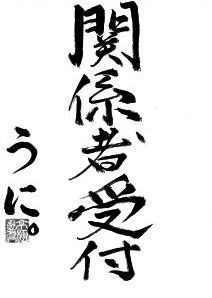 関係者受付
うに。